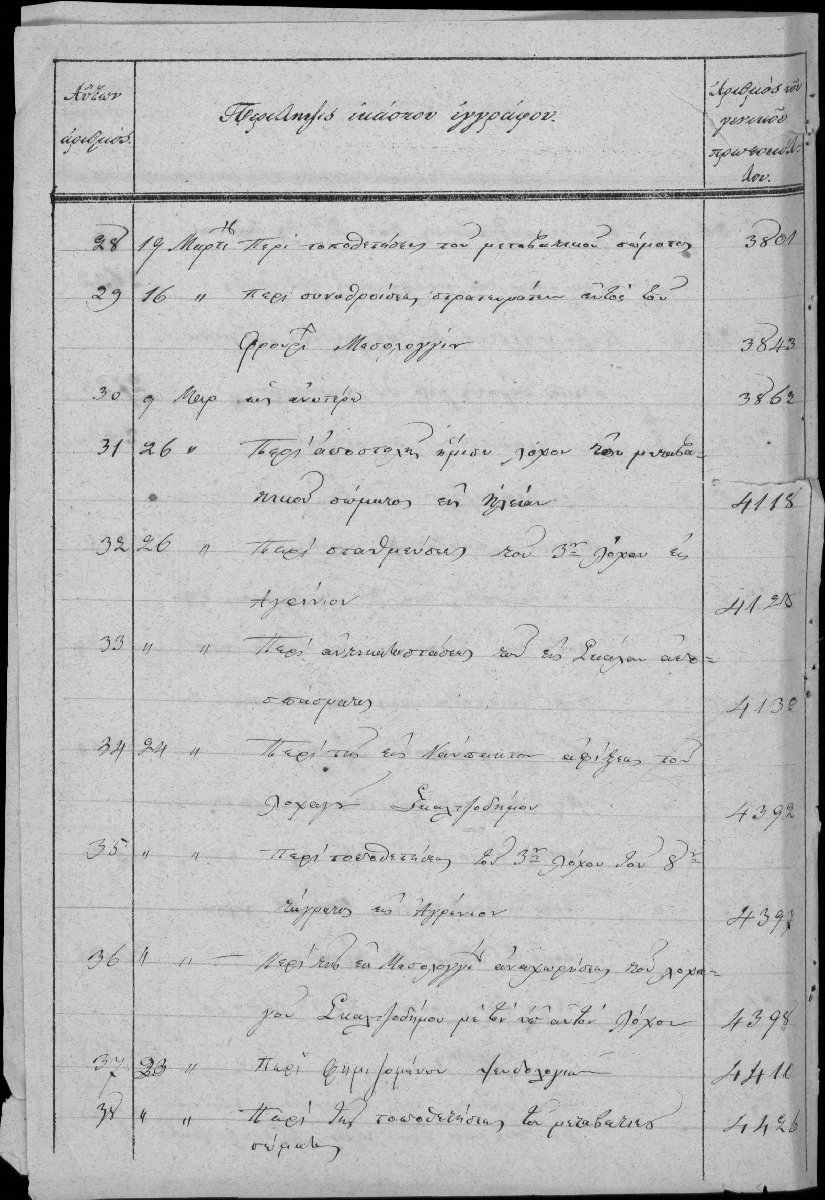 Αὔτων ἀριθμὸς.
Περίληψις ἑκάστου ἐγγράφου.
Ἀριθμὸς τοῦ γενικοῦ πρωτοκόλλου.
28 19 Μαρτί Περὶ τοποθετήσεως τοῦ μεταβατικοῦ σώματος 3801
29 16 " Περὶ συναθροίσεως στρατευμάτων αὐτὸς τοῦ
Φρουρί Μεσολογγίου 3843
30 9 Μαρ ὡς ἀνωτέρω 3862
31 26 " Περὶ ἀποστολῆς ἡμίσυ λόχου τοῦ μεταβα=
τικοῦ σώματος εἰς Ἠλείαν 4118
32 26 " Περὶ σταθμεύσεως τοῦ 3ου λόχου εἰς
Ἀγρίνιον 4128
33 " " Περὶ ἀντικαταστάσεως τοῦ εἰς Σκάλαν ἀπο=
σπάσματος 4130
34 24 " Περὶ τῆς εἰς Ναύπακτον ἀφίξεως τοῦ
λοχαγοῦ Σκαλτζοδήμου 4392
35 " " Περὶ τοποθετήσεως τοῦ 3ου λόχου τοῦ 8ου
τάγματος εἰς Ἀγρίνιον 4397
36 " " — Περὶ τῆς ἐκ Μεσολογγί ἀναχωρήσεως τοῦ λοχα=
γοῦ Σκαλτζοδήμου μὲ τὸν ὑπ' αὐτὸν λόχον 4398
37 23 " Περὶ φημιζομένων ψευδολογιῶν 4410
38 " " Περὶ τῆς τοποθετήσεως τοῦ μεταβατικοῦ 4426
σώματος